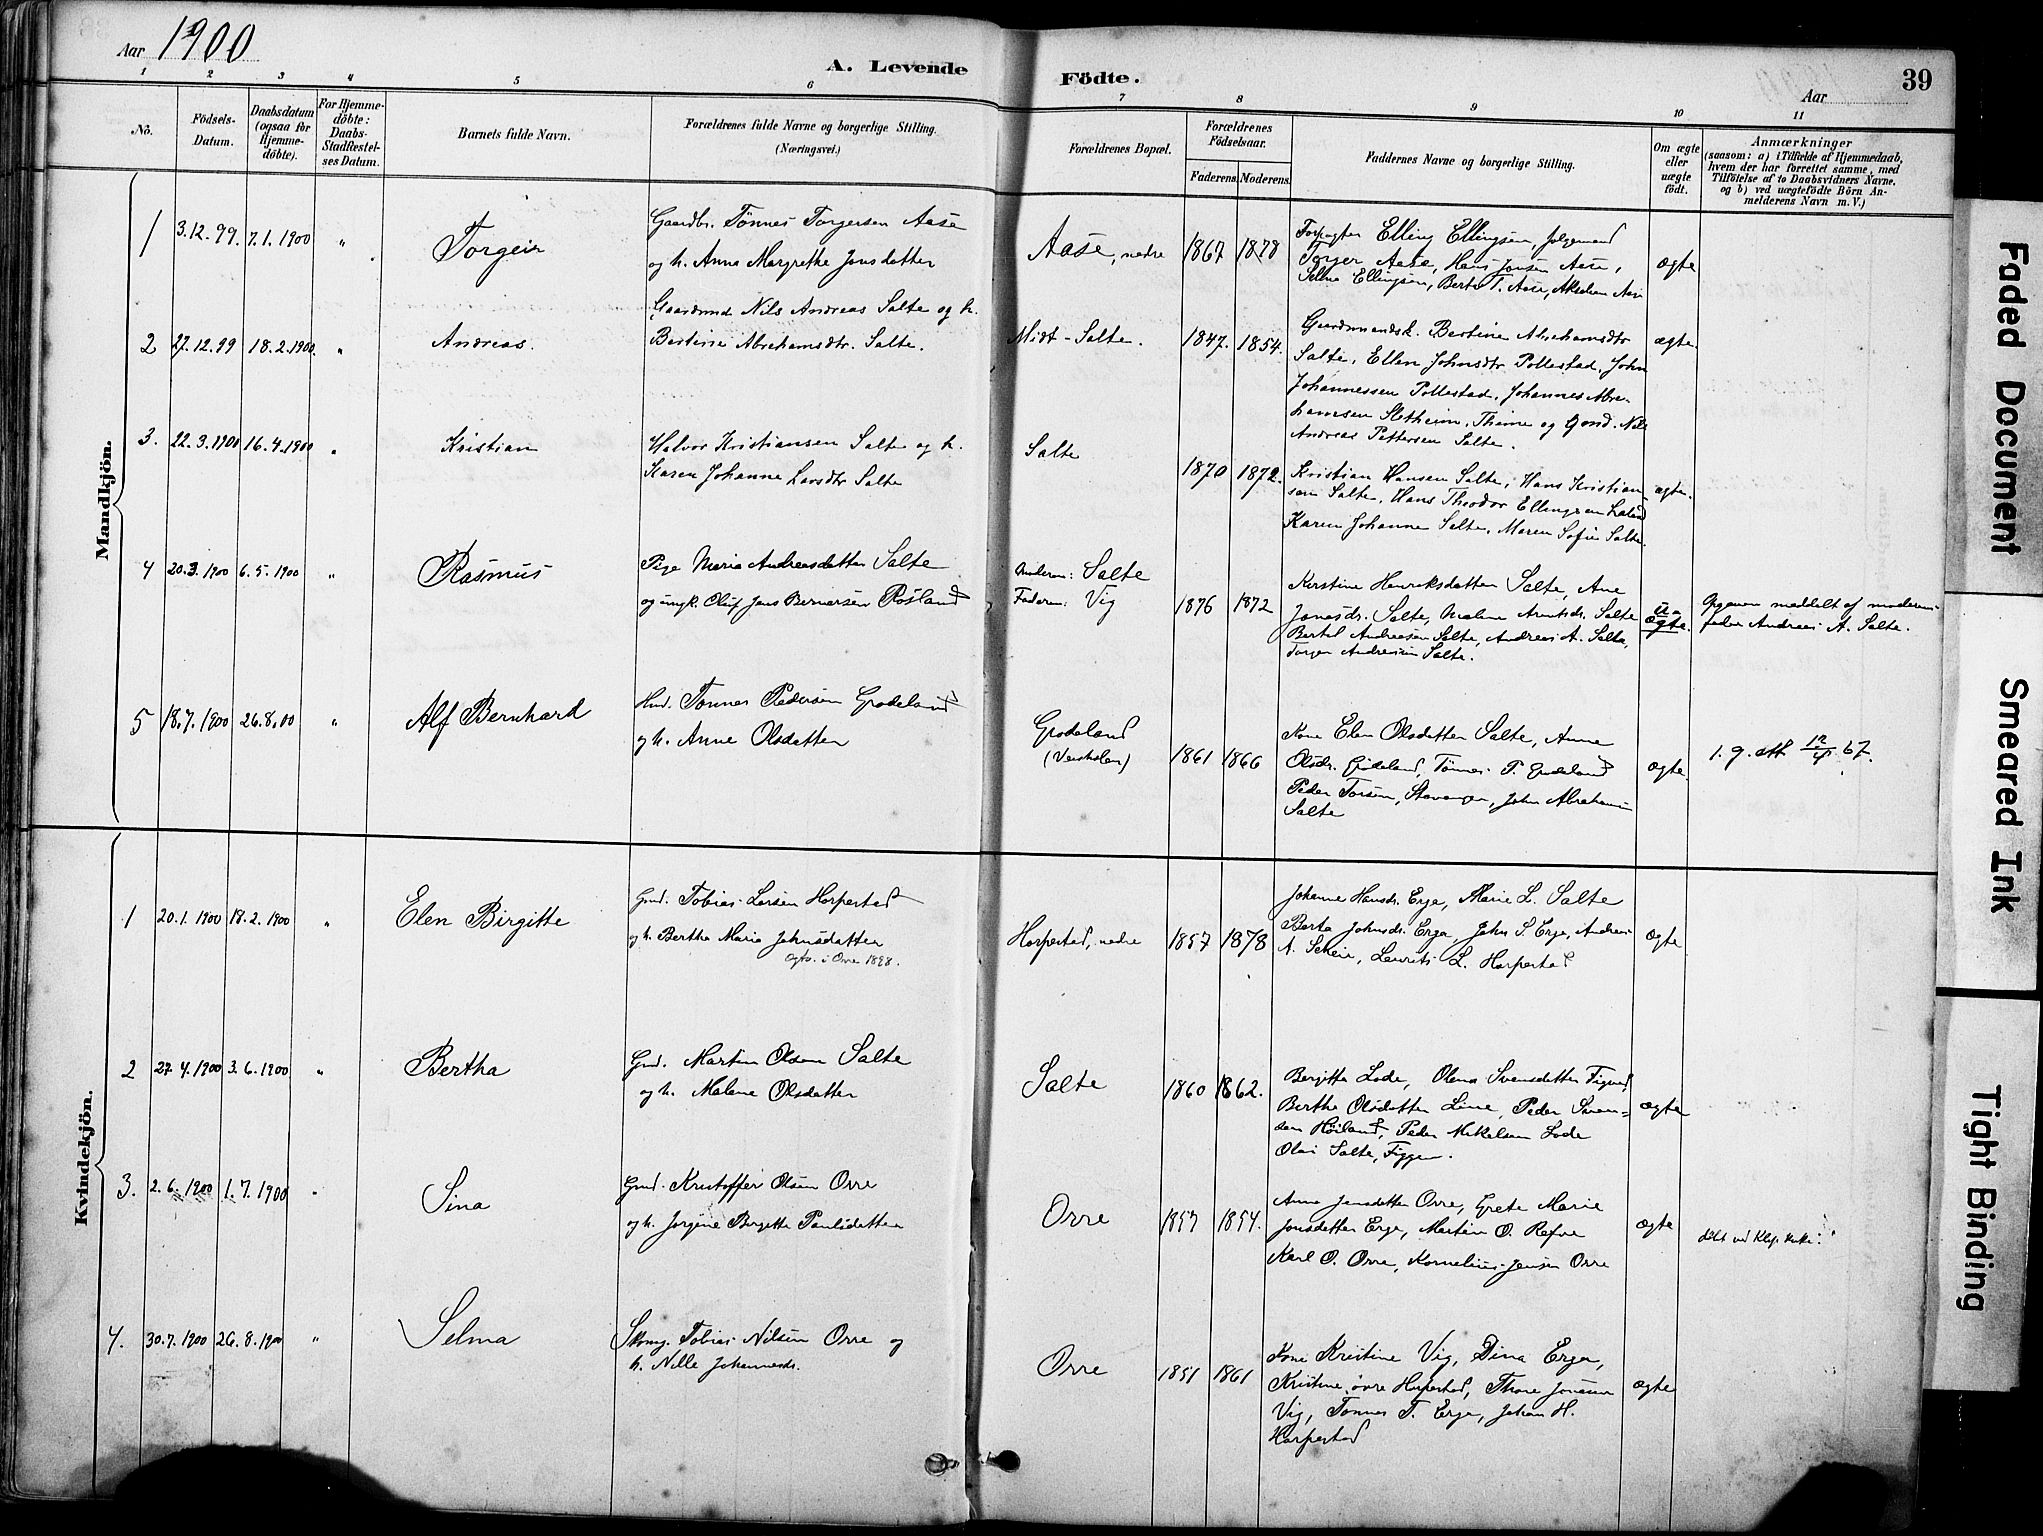 Aar 1900
A. Levende Födte.
39
Aar
1 2 3 4 5 6 7 8 9 10 11
No.
Födsels-
Datum.
Daabsdatum
(ogsaa for
Hjemme-
döbte).
For Hjemme-
döbte:
Daabs-
Stadfæstel-
ses Datum.
Barnets fulde Navn.
Forældrenes fulde Navne og borgerlige Stilling.
(Næringsvei.)
Forældrenes Bopæl.
Forældrenes
Födselsaar.
Faderens. Moderens.
Faddernes Navne og borgerlige Stilling.
Om ægte
eller
uægte
födt.
Anmærkninger
(saasom: a) i Tilfælde af Hjemmedaab,
hvem der har forrettet samme, med
Tilföielse af to Daabsvidners Navne,
og b) ved uægtefödte Börn An-
melderens Navn m. V.)
Mandkjön.
1 3.12.99. 7.1.1900 " Torgeir
Gaardbr. Tönnes Torgersen Aase
og h. Anna Margrethe Jonsdatter
Aase, nedre 1867 1878
Forpagter Elling Ellingsen,
Torger Aase, Hans Jonsen Aase,
Selma Ellingsen, Berte T. Aase, Akselsen Aase
ægte
2 27.12.99 18.2.1900. " Andreas.
Gaardmd Nils Andreas Salte og h.
Bertine Abrahamsdtr. Salte.
Midt-Salte. 1847. 1854.
Gaardmandsk. Bertine Abrahamsdtr
Salte, Ellen Johnsdtr Pollestad, John
Johannessen Pollestad, Johannes Abra-
hamsen Sletheim, Thime og Gmd. Nils
Andreas Pettersen Salte.
ægte.
3. 22.3.1900 16.4.1900 " Kristian
Halvor Kristiansen Salte og h.
Karen Johanne Larsdtr Salte
Salte 1870 1872.
Kristian Hansen Salte, Hans Kristian-
sen Salte, Hans Theodor Ellingsen Laland
Karen Johanne Salte, Maren Sofie Salte.
ægte.
4 20.3.1900 6.5.1900 " Rasmus
Pige Maria Andreasdatter Salte
og ungk. Oluf Jens Bernersen Rosland
Moderen: Salte
Faderen: Vig
1876 1872
Kirstine Henriksdatter Salte, Ane
Jonasdr. Salte, Malene Arntsdr. Salte
Bertel Andreasen Salte, Andreas A. Salte,
Torger Andreasen Salte.
u-
ægte.
Opgaven meddelt af moderens
fader Andreas A. Salte.
5 18.7.1900 26.8.00 " Alf Bernhard
Hmd. Tönnes Pedersen Grødeland
og h. Anne Olsdatter
Grødeland
1861 1866
Kone Elen Olsdatter Salte, Anne
Olsdr. Grødeland, Tönnes P. Grødeland
Peder Torsen, Stavanger, John Abraham
Salte
ægte
1. g. att 12/4 67.
Kvindekjön.
1 20.1.1900 18.2.1900 " Elen Birgitte
Gmd. Tobias Larsen Horpestad
og h. Bertha Maria Johnsdatter
Egtv. i Orre 1898.
Horpestad, nedre 1857 1878
Johanne Hansdr. Erga, Marie L. Salte
Berta Johnsdr. Erga, John S. Erga, Andreas
A. Scheie, Laurits L. Horpestad
ægte
2 27.4.1900 3.6.1900 " Bertha
Gmd. Martin Olsen Salte
og h. Malene Olsdatter
Salte 1860 1862.
Bergitte Lode, Olena Svensdatter Figved
Bertha Olsdatter Line, Peder Sven-
sen Höiland, Peder Mikelsen Lode
Olai Salte, Figgen.
ægte
3. 2.6.1900 1.7.1900 " Sina
Gmd. Kristoffer Olsen Orre
og h. Jorgine Bergitte Paulsdatter
Orre 1857 1854.
Anna Jonsdatter Orre, Grete Marie
Jonsdatter Erga, Martin O. Refve
Karl O. Orre, Kornelius Jensen Orre
ægte
döbt ved Klep kirke.
4. 30.7.1900 26.8.1900 " Selma
Skomg. Tobias Nilsen Orre og
h. Nille Johannesdr.
Orre 1851 1861
Kone Kristine Vig, Dina Erga,
Kristine, övre Horpestad, Thore Jonsen
Vig, Tönnes T. Erga, Johan H.
Horpestad
ægte
Faded Document
Smeared Ink
Tight Binding